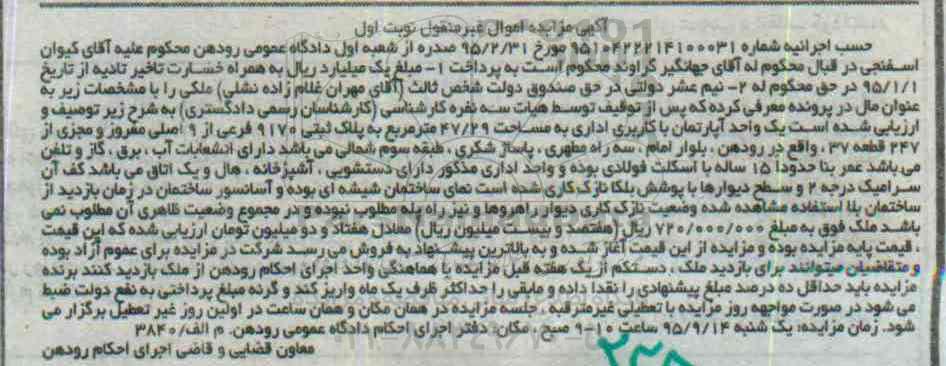 آگهی مزایده اموال غیرمنقول نوبت اول
حسب اجرائیه شماره ۹۵۱۰۴۲۲۲۱۴۱۰۰۰۳۱ مورخ ۹۵/۲/۳۱ صدره از شعبه اول دادگاه عمومی رودهن محکوم علیه آقای کیوان
اسفنجی در قبال محکوم له آقای جهانگیر گراوند محکوم است به پرداخت ۱- مبلغ یک میلیارد ریال به همراه خسارت تاخیر تادیه از تاریخ
۹۵/۱/۱ در حق محکوم له ۲- نیم عشر دولتی در حق صندوق دولت شخص ثالث (آقای مهران غلام زاده نشلی) ملکی را با مشخصات زیر به
عنوان مال در پرونده معرفی کرده که پس از توقیف توسط هیات سه نفره کارشناسی (کارشناسان رسمی دادگستری) به شرح زیر توصیف و
ارزیابی شده است یک واحد آپارتمان با کاربری اداری به مساحت ۴۷/۲۹ مترمربع به پلاک ثبتی ۹۱۷۰ فرعی از ۹ اصلی مفروز و مجزی از
۲۴۷ قطعه ۳۷، واقع در رودهن، بلوار امام، سه راه مطهری، پاساژ شکری، طبقه سوم شمالی می باشد دارای انشعابات آب، برق، گاز و تلفن
می باشد عمر بنا حدود ۱۵ ساله با اسکلت فولادی بوده و واحد اداری مذکور دارای دستشویی، آشپزخانه، هال و یک اتاق می باشد کف آن
سرامیک درجه ۲ و سطح دیوارها با پوشش بلکا نازک کاری شده است نمای ساختمان شیشه ای بوده و آسانسور ساختمان در زمان بازدید از
ساختمان بلا استفاده مشاهده شده وضعیت نازک کاری دیوار راهروها و نیز راه پله مطلوب نبوده و در مجموع وضعیت ظاهری آن مطلوب نمی
باشد ملک فوق به مبلغ ۷۲۰/۰۰۰/۰۰۰ ریال (هفتصد و بیست میلیون ریال) معادل هفتاد و دو میلیون تومان ارزیابی شده که این قیمت
، قیمت پایه مزایده بوده و مزایده از این قیمت آغاز شده و به بالاترین پیشنهاد به فروش می رسد شرکت در مزایده برای عموم آزاد بوده
و متقاضیان میتوانند برای بازدید ملک، دستکم از یک هفته قبل مزایده با هماهنگی واحد اجرای احکام رودهن از ملک بازدید کنند برنده
مزایده باید حداقل ده درصد مبلغ پیشنهادی را نقدا داده و مابقی را حداکثر ظرف یک ماه واریز کند و گرنه مبلغ پرداختی به نفع دولت ضبط
می شود در صورت مواجهه روز مزایده با تعطیلی غیرمترقبه، جلسه مزایده در همان مکان و همان ساعت در اولین روز غیر تعطیل برگزار می
شود. زمان مزایده: یک شنبه ۹۵/۹/۱۴ ساعت ۱۰-۹ صبح، مکان: دفتر اجرای احکام دادگاه عمومی رودهن. م الف/۳۸۴۰
معاون قضایی و قاضی اجرای احکام رودهن